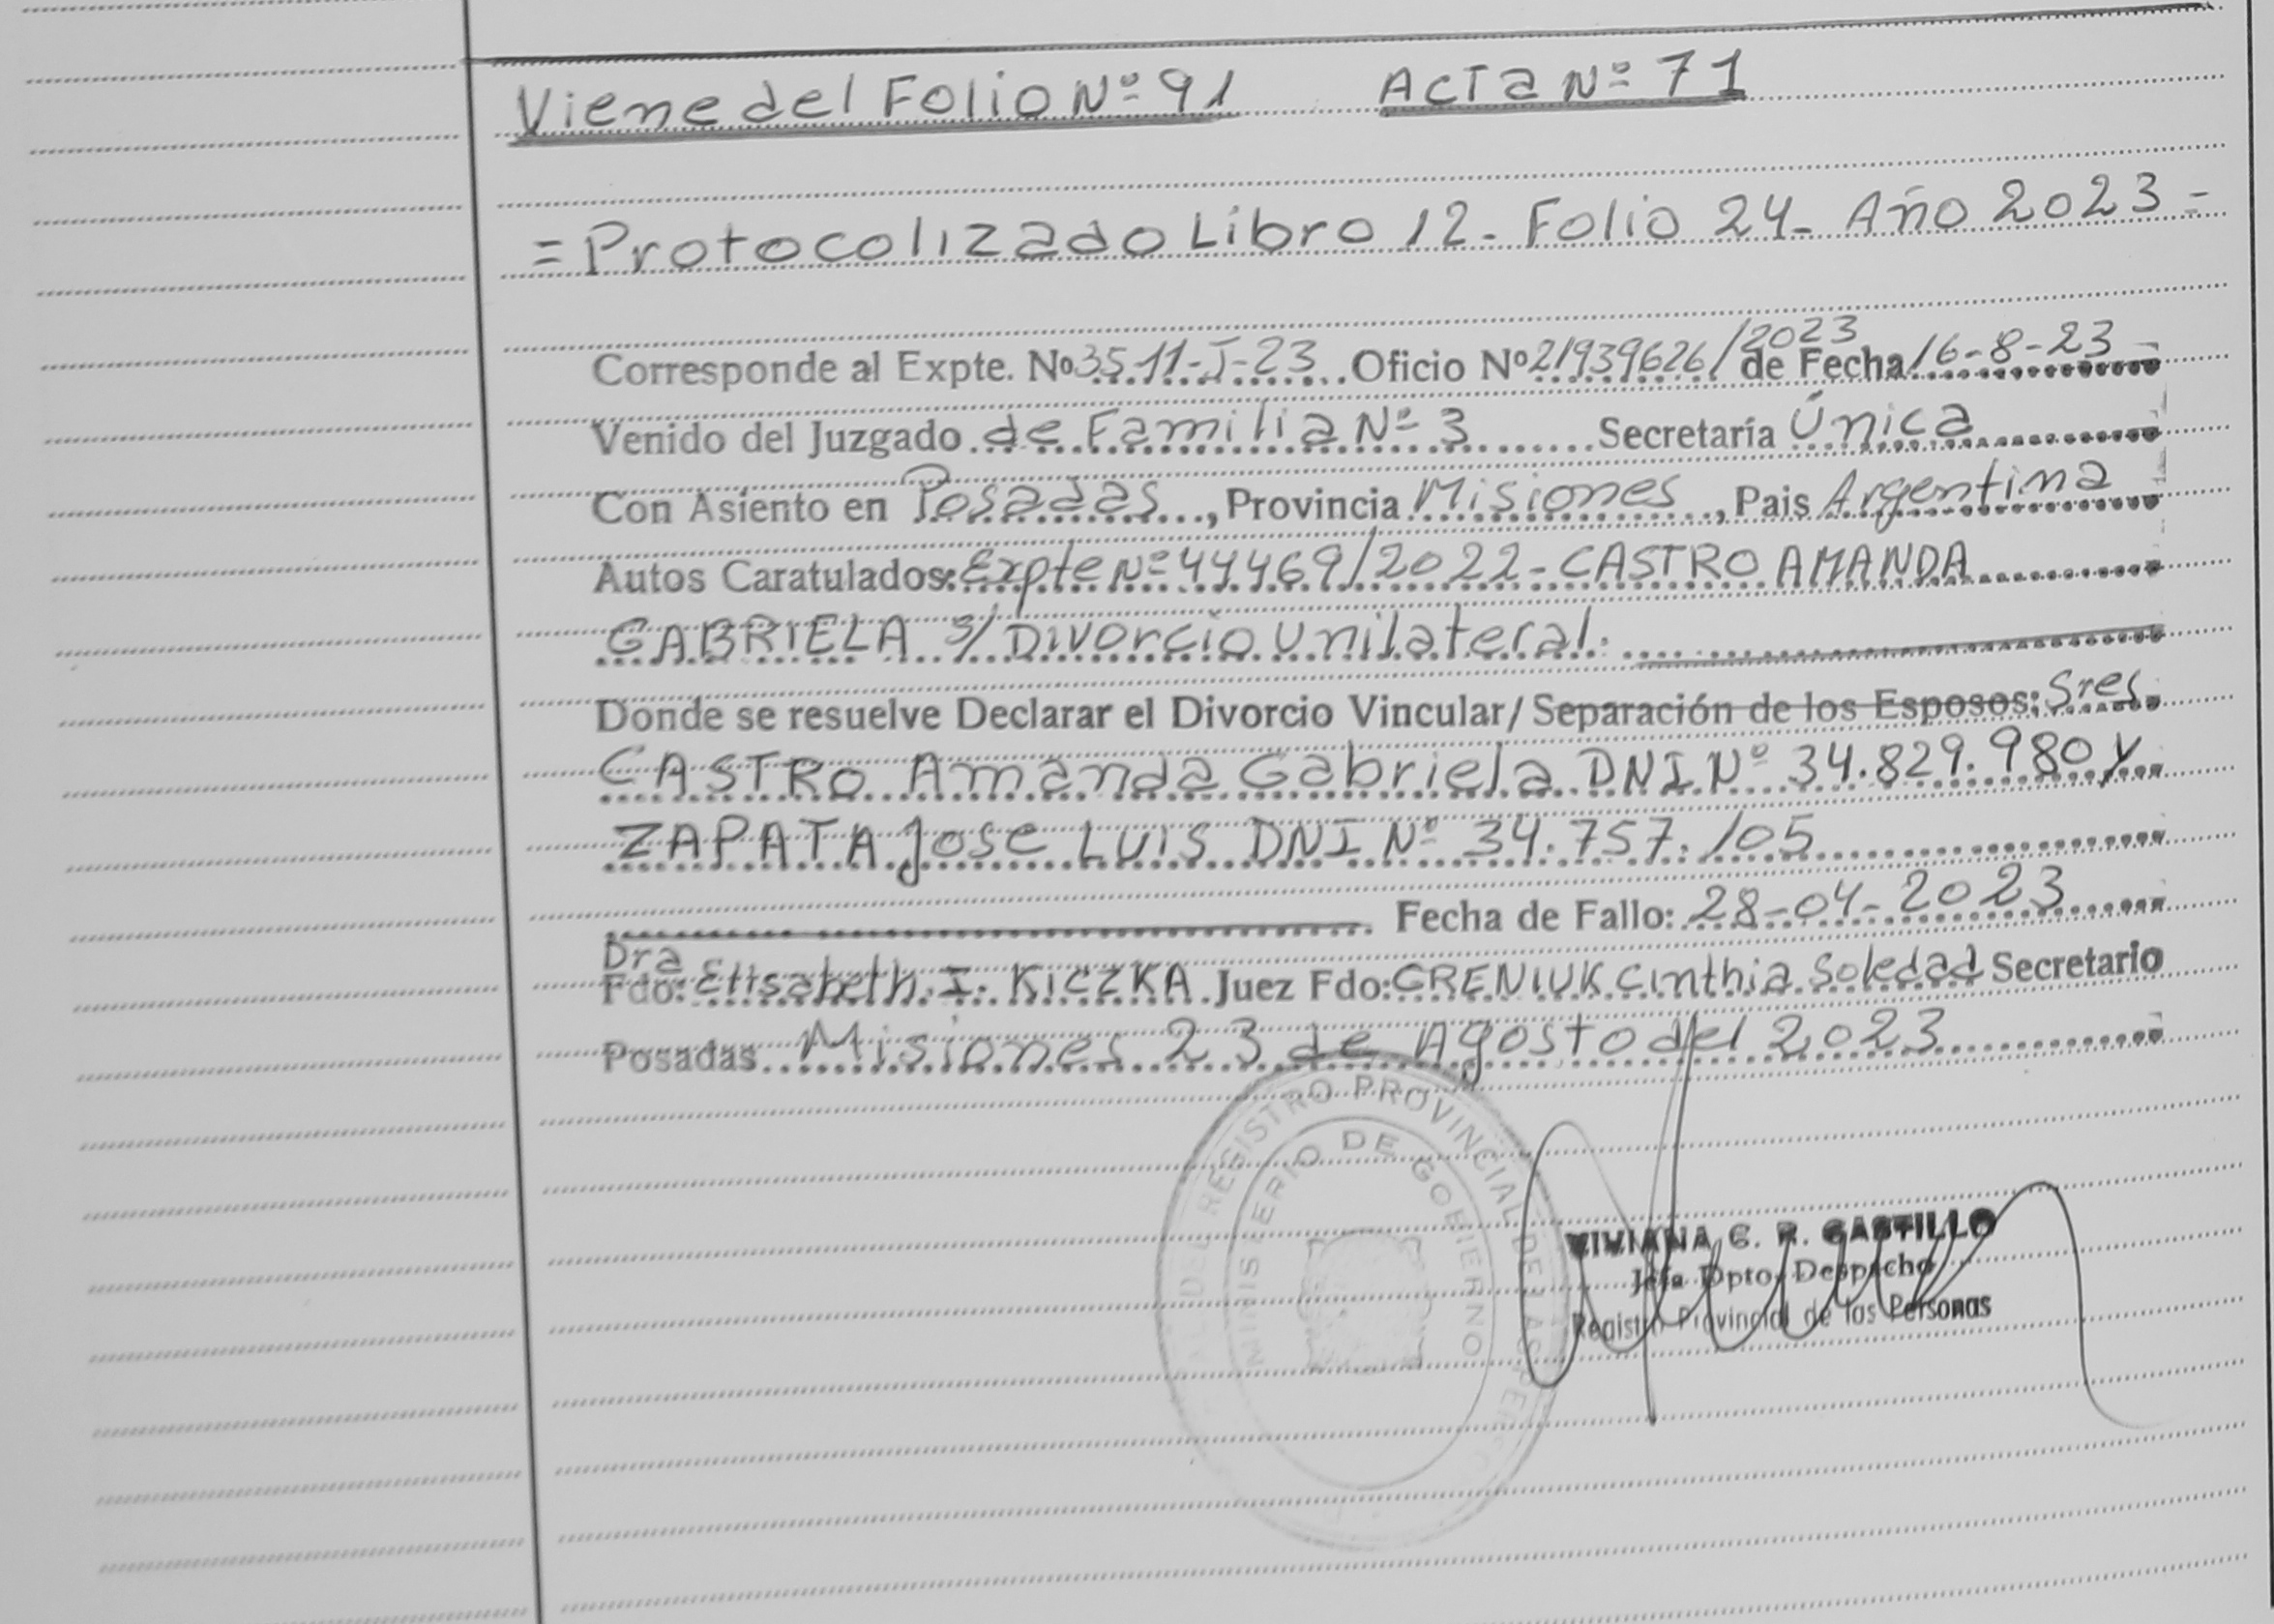 Viene del Folio Nº 91 Acta Nº 71
= Protocolizado Libro 12 - Folio 24 - Año 2023 =
Corresponde al Expte. Nº 3511-J-23 Oficio Nº 21939626/2023 de Fecha 16-8-23
Venido del Juzgado de Familia Nº 3 Secretaría Única
Con Asiento en Posadas, Provincia Misiones, Pais Argentina
Autos Caratulados: Expte Nº 44469/2022 - CASTRO AMANDA
GABRIELA s/ Divorcio Unilateral.
Donde se resuelve Declarar el Divorcio Vincular/ Separación de los Esposos: Sres.
CASTRO Amanda Gabriela DNI Nº 34.829.980 y
ZAPATA Jose Luis DNI Nº 34.757.105
Fecha de Fallo: 28-04-2023
Dra
Fdo: Elisabeth I. KICZKA Juez Fdo: CRENIUK Cinthia Soledad Secretario
Posadas Misiones 23 de Agosto del 2023
REGISTRO PROVINCIAL DE LAS
MINISTERIO DE GOBIERNO
VIVIANA G. R. CASTILLO
Jefa Dpto. Despacho
Registro Provincial de las Personas